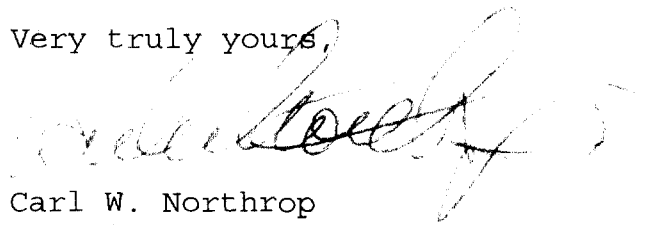 Very truly yours,
Carl W. Northrop